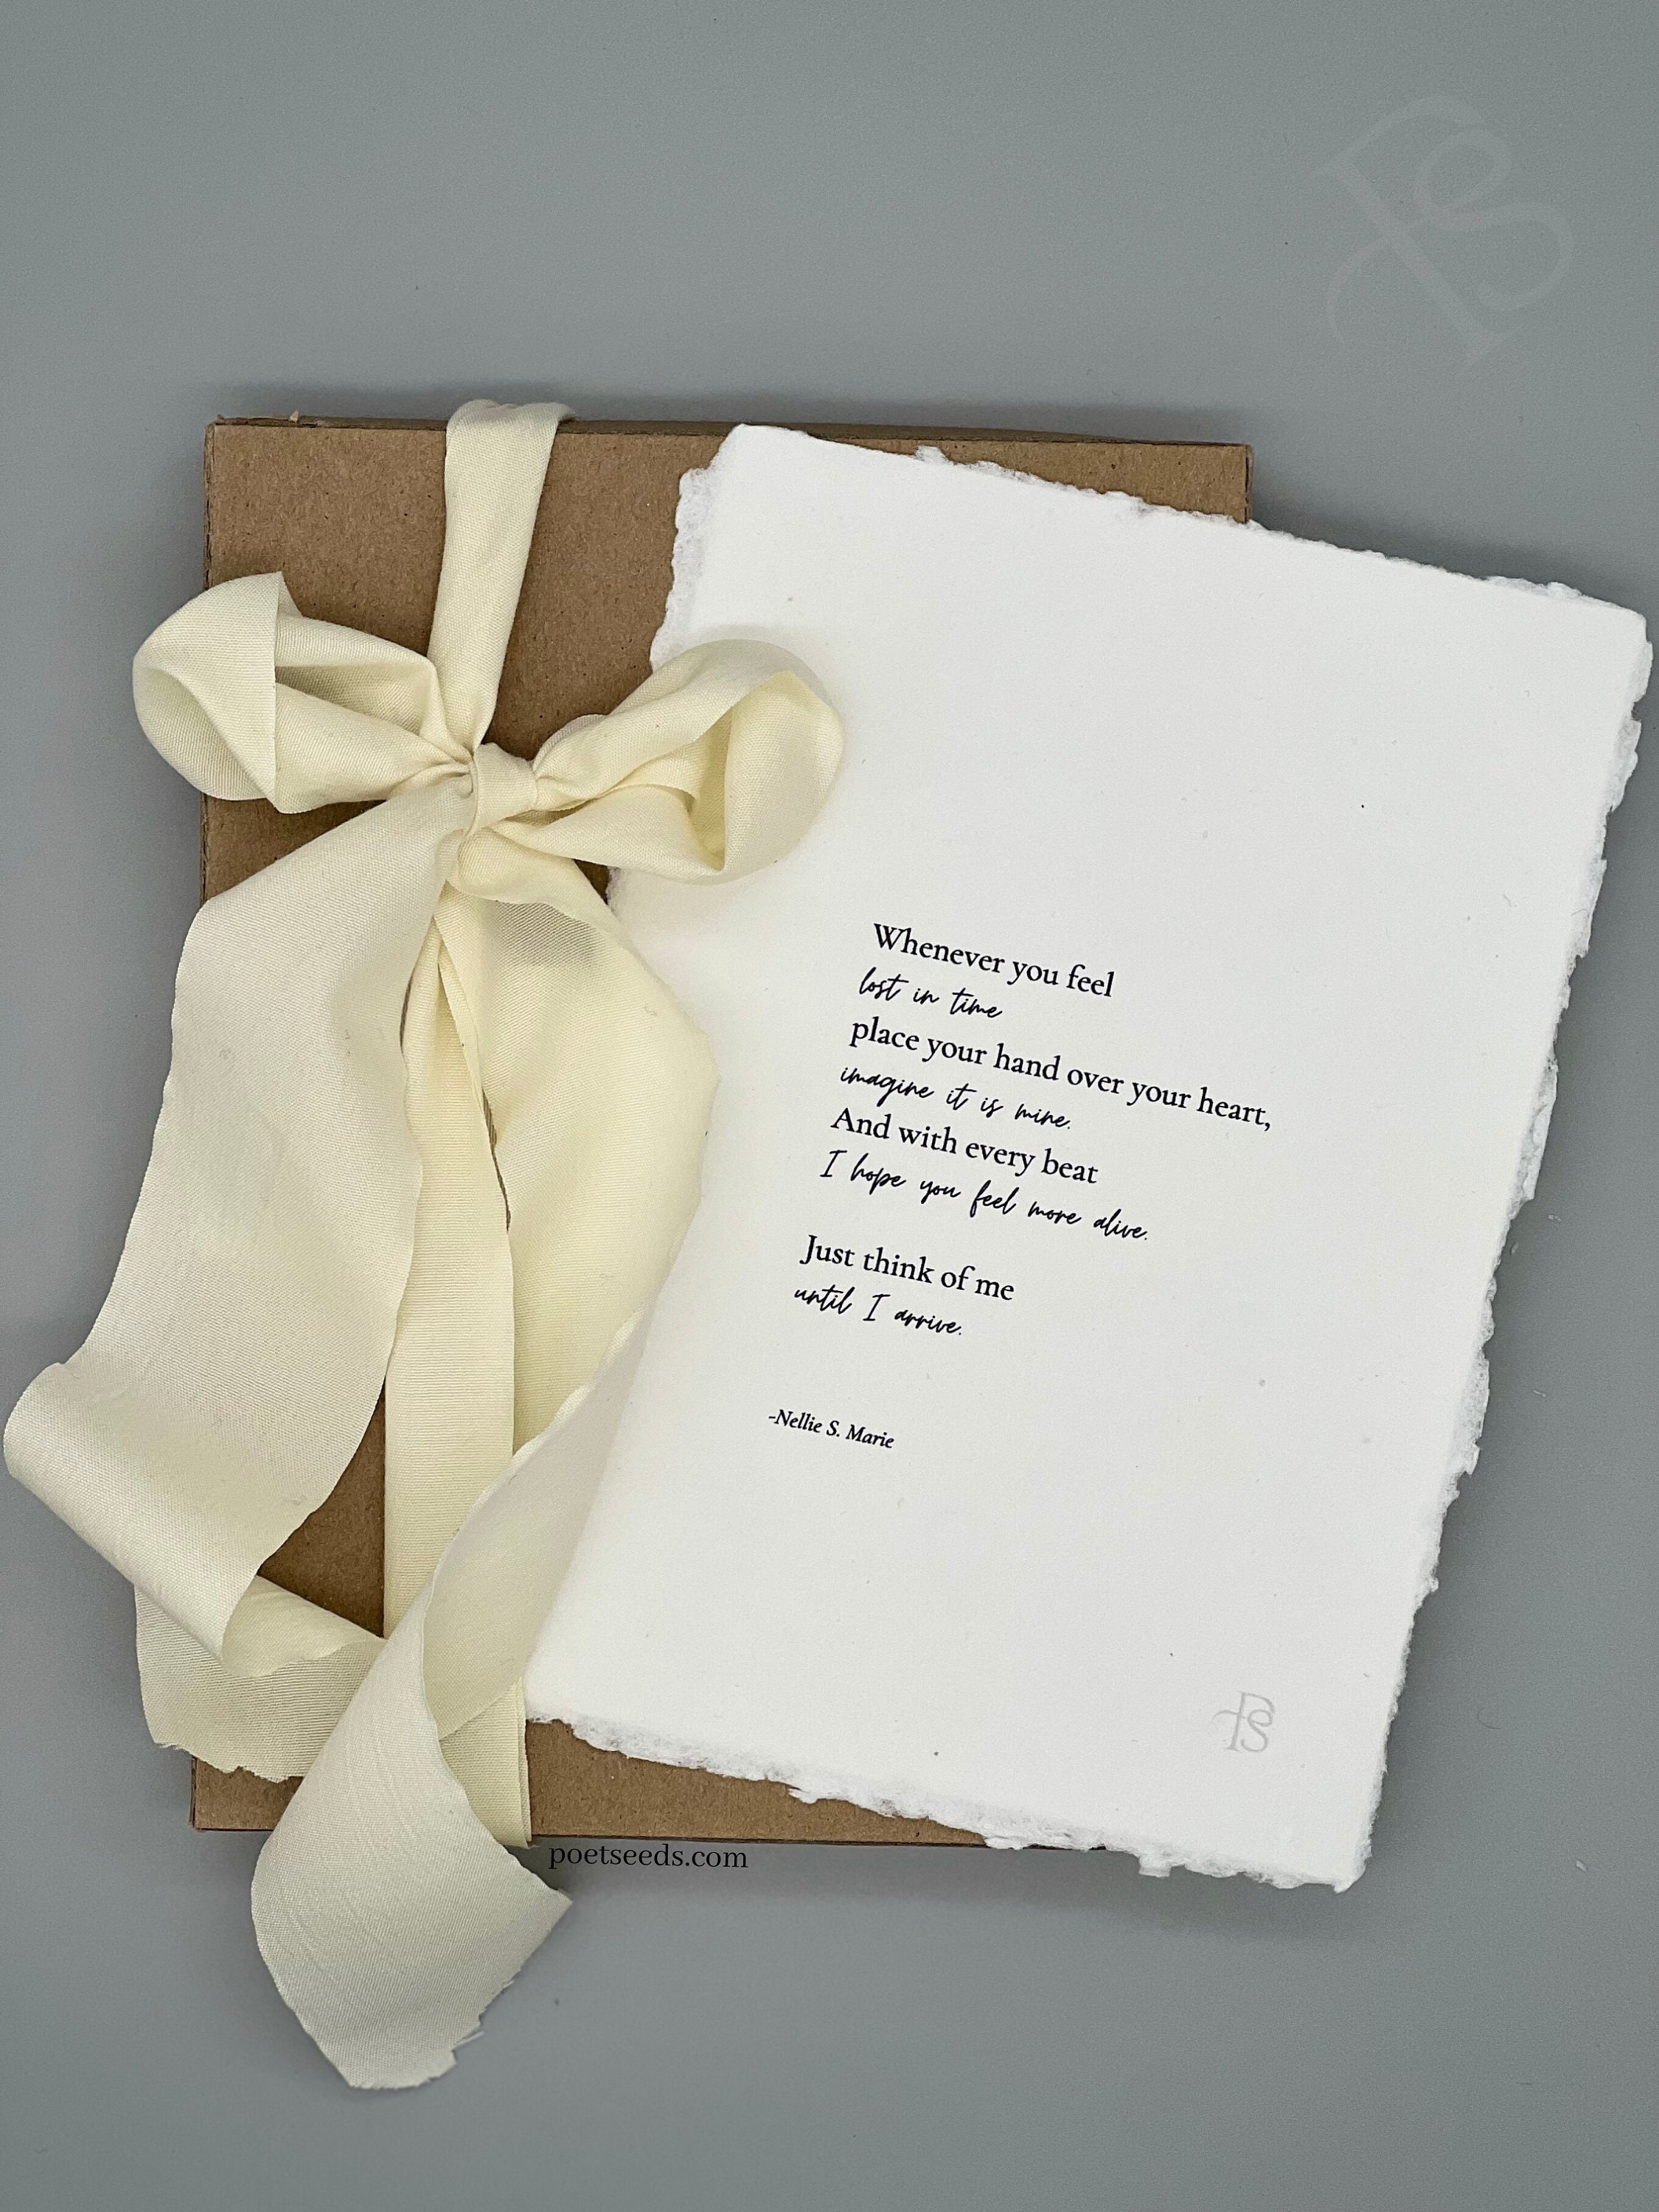 Whenever you feel
lost in time
place your hand over your heart,
imagine it is mine.
And with every beat
I hope you feel more alive.
Just think of me
until I arrive.
-Nellie S. Marie
PS
poetseeds.com
PS